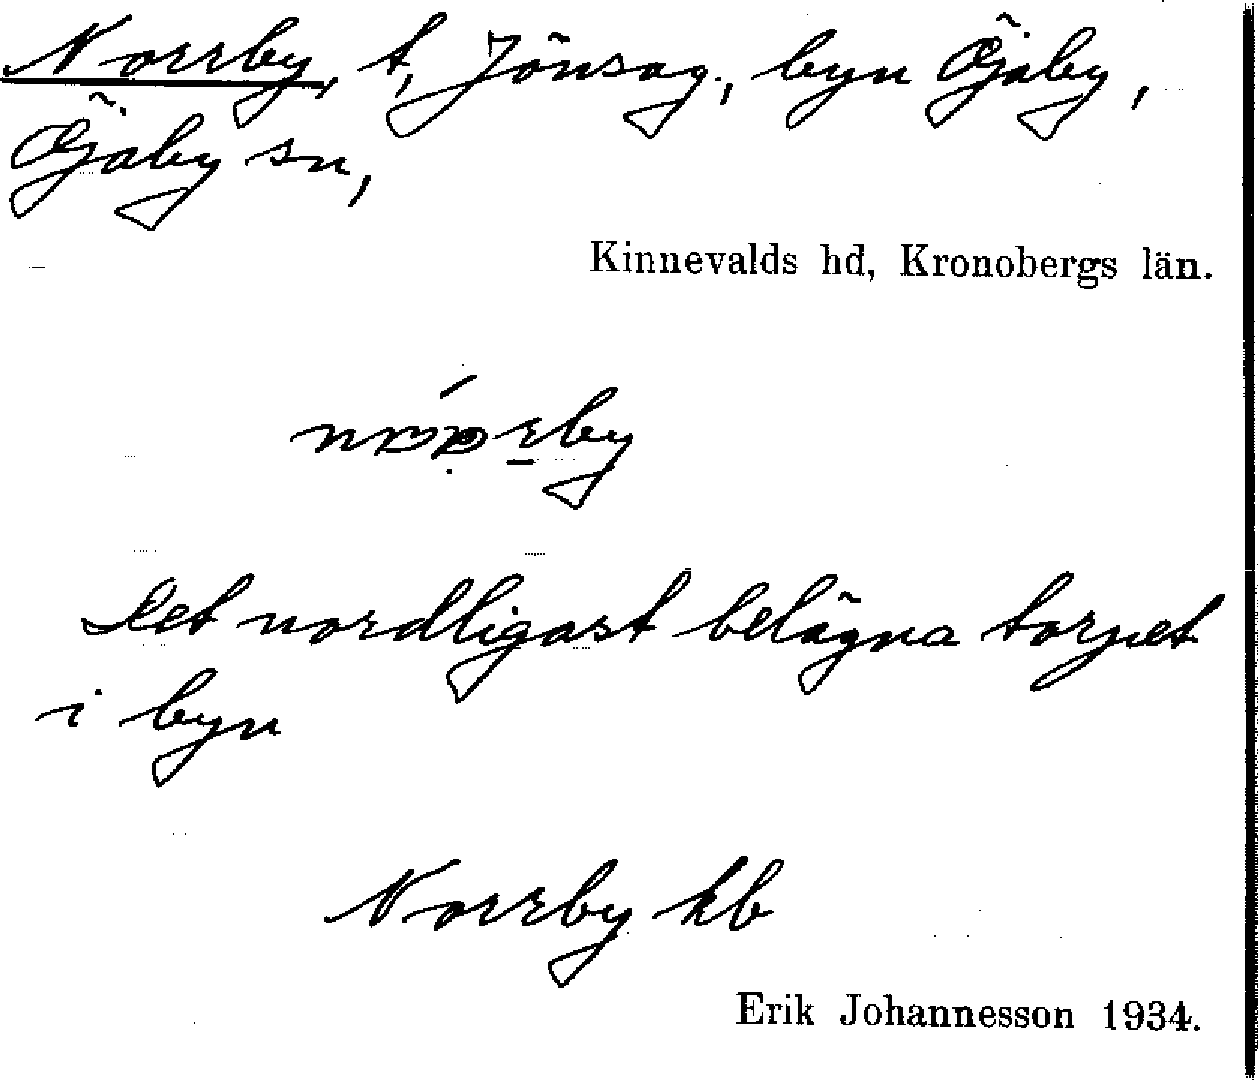 Norrby, t, Jönsag., byn Öjaby,
Öjaby sn,
Kinnevalds hd, Kronobergs län.
Det nordligast belägna torpet
i byn
Norrby kb
Erik Johannesson 1934.